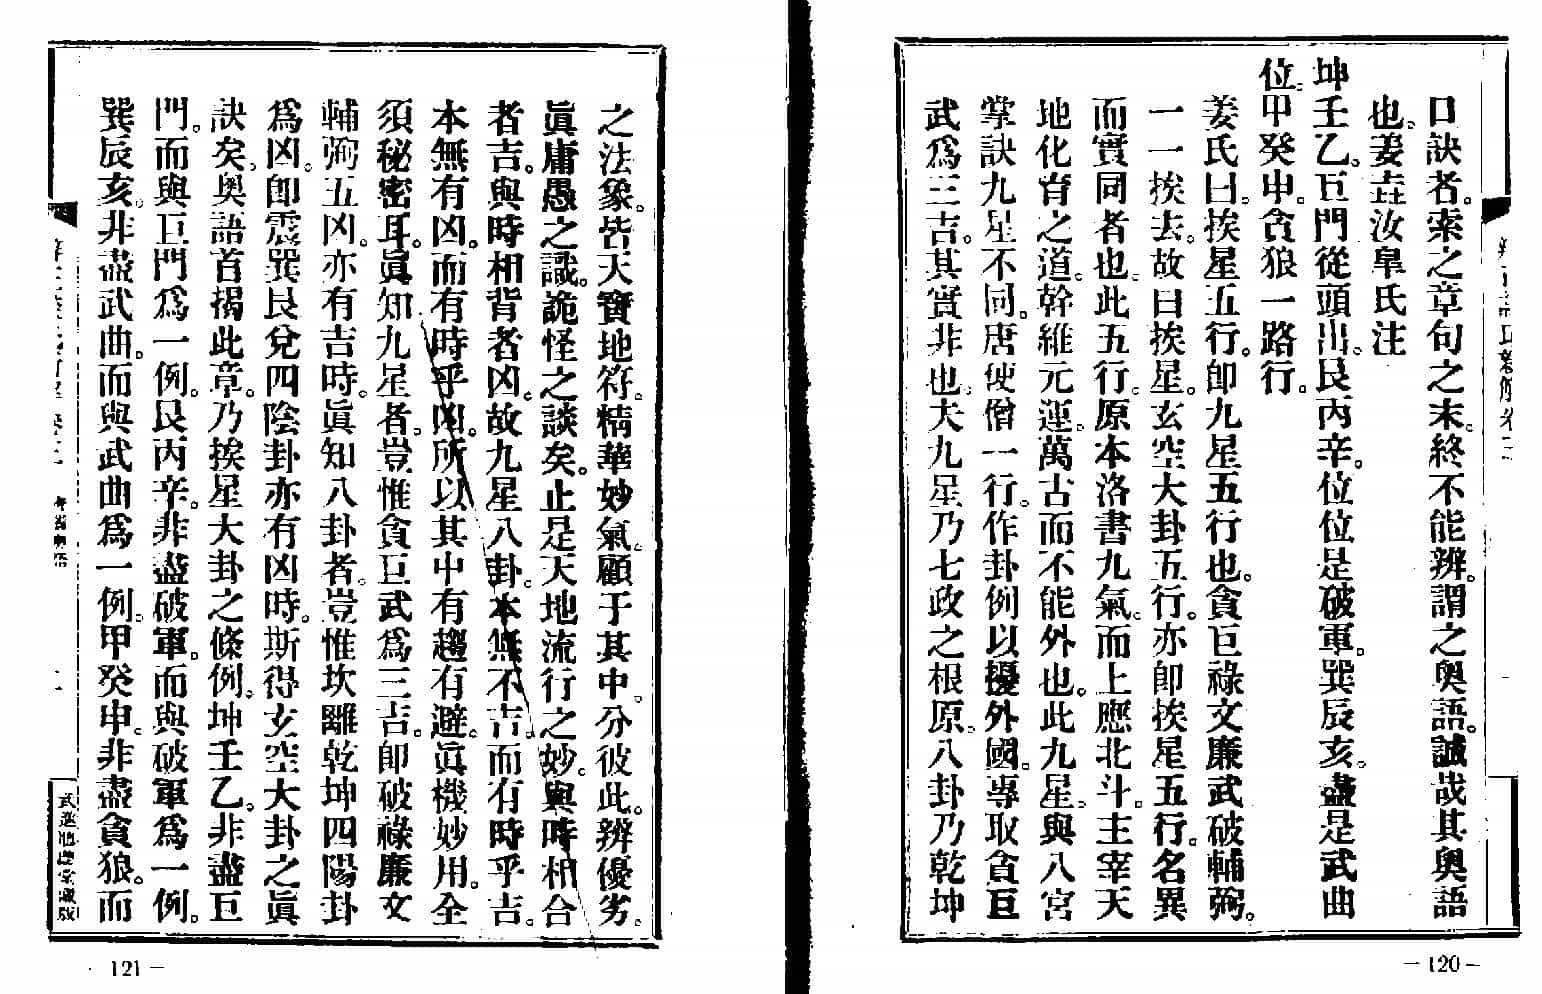 口訣者。索之章句之末。終不能辨。謂之奧語。誠哉其奧語
也。姜垚汝臯氏注
坤壬乙。巨門從頭出。艮丙辛。位位是破軍。巽辰亥。盡是武曲
位。甲癸申。貪狼一路行。
姜氏曰。挨星五行。即九星五行也。貪巨祿文廉武破輔弼。
一一挨去。故曰挨星。玄空大卦五行。亦即挨星五行。名異
而實同者也。此五行。原本洛書九氣。而上應北斗。主宰天
地化育之道。幹維元運。萬古而不能外也。此九星。與八宮
掌訣九星不同。唐使僧一行。作卦例以擾外國。專取貪巨
武爲三吉。其實非也。夫九星乃七政之根原。八卦乃乾坤
－120－
之法象。皆天寶地符。精華妙氣。顧于其中。分彼此。辨優劣。
眞庸愚之識。詭怪之談矣。止是天地流行之妙。與時相合
者吉。與時相背者凶。故九星八卦。本無不吉。而有時乎吉。
本無有凶。而有時乎凶。所以其中有趨有避。眞機妙用。全
須秘密耳。眞知九星者。豈惟貪巨武爲三吉。即破祿廉文
輔弼五凶。亦有吉時。眞知八卦者。豈惟坎離乾坤四陽卦
爲凶。即震巽艮兌四陰卦亦有凶時。斯得玄空大卦之眞
訣矣。奧語首揭此章。乃挨星大卦之條例。坤壬乙。非盡巨
門。而與巨門爲一例。艮丙辛。非盡破軍。而與破軍爲一例。
巽辰亥。非盡武曲。而與武曲爲一例。甲癸申。非盡貪狼。而
121－